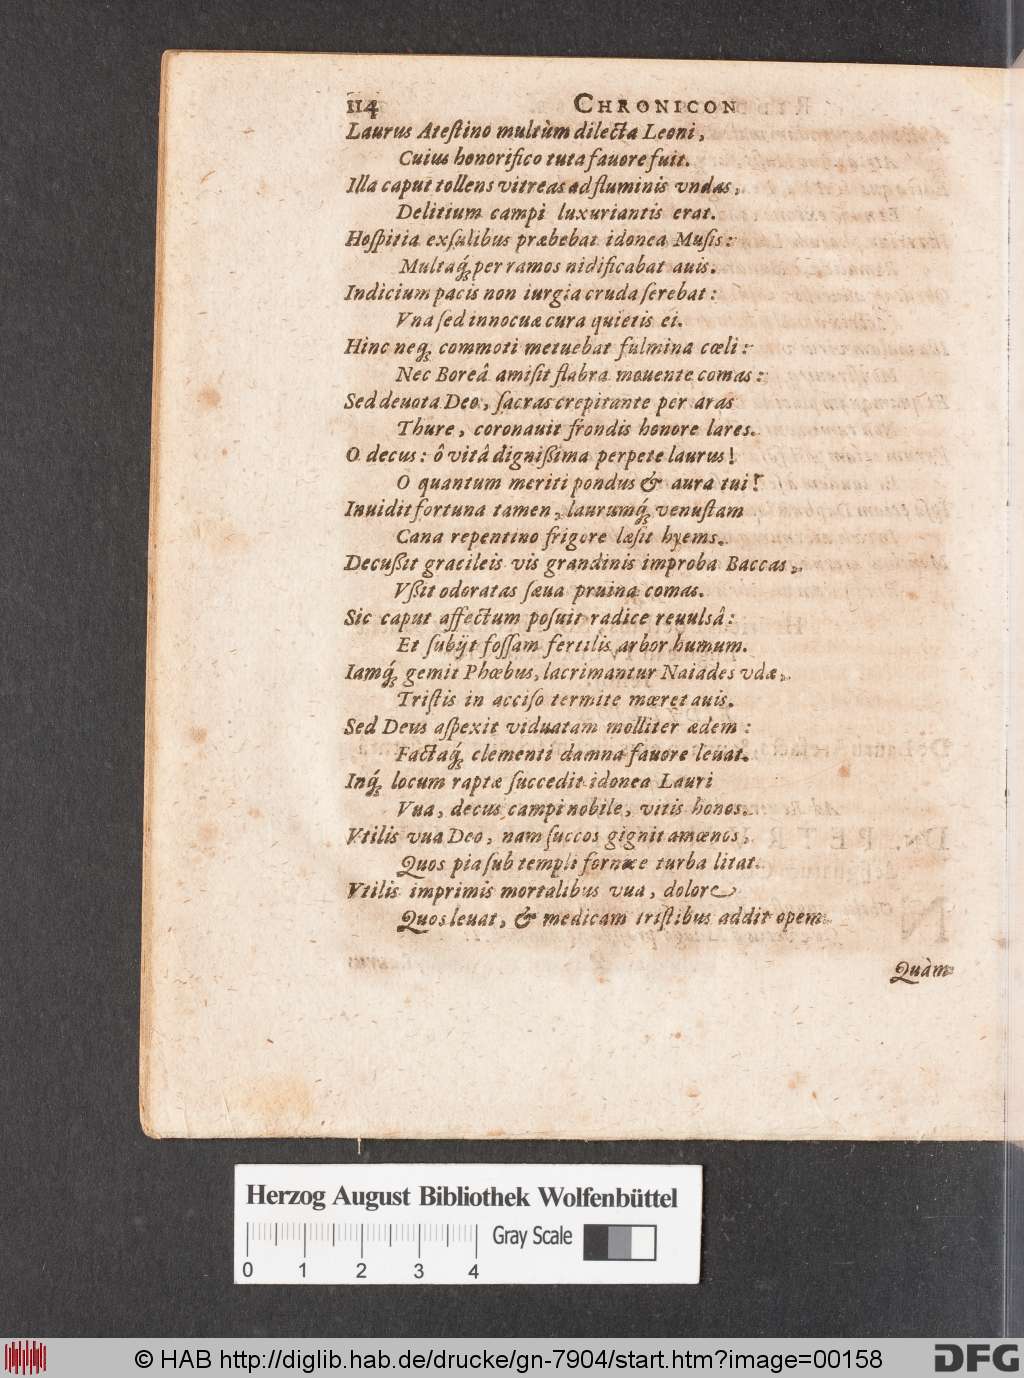 114 CHRONICON
Laurus Atestino multùm dilecta Leoni,
Cuius honorifico tuta fauore fuit.
Illa caput tollens vitreas ad fluminis vndas,
Delitium campi luxuriantis erat.
Hoſpitia exſulibus præbebat idonea Muſis:
Multaq́ꝫ per ramos nidificabat auis.
Indicium pacis non iurgia cruda ferebat:
Vna ſed innocuæ cura quietis ei.
Hinc neqꝫ commoti metuebat fulmina cœli:
Nec Boreâ amiſit flabra mouente comas:
Sed deuota Deo, ſacras crepitante per aras
Thure, coronauit frondis honore lares.
O decus: ô vitâ digniſsima perpete laurus!
O quantum meriti pondus & aura tui!
Inuidit fortuna tamen, laurumq́ꝫ venuſtam
Cana repentino frigore læſit hyems.
Decuſsit gracileis vis grandinis improba Baccas,
Vſsit odoratas ſæua pruina comas.
Sic caput affectum poſuit radice reuulsâ:
Et ſubijt foſſam fertilis arbor humum.
Iamq́ꝫ gemit Phœbus, lacrimantur Naiades vdæ,
Triſtis in acciſo termite mœret auis.
Sed Deus aſpexit viduatam molliter ædem:
Factaq́ꝫ clementi damna fauore leuat.
Inq́ꝫ locum raptæ ſuccedit idonea Lauri
Vua, decus campi nobile, vitis honos.
Vtilis vua Deo, nam ſuccos gignit amœnos,
Quos pia ſub templi fornice turba litat.
Vtilis imprimis mortalibus vua, dolore
Quos leuat, & medicam triſtibus addit opem.
Quàm
Herzog August Bibliothek Wolfenbüttel
0 1 2 3 4 Gray Scale
© HAB http://diglib.hab.de/drucke/gn-7904/start.htm?image=00158 DFG